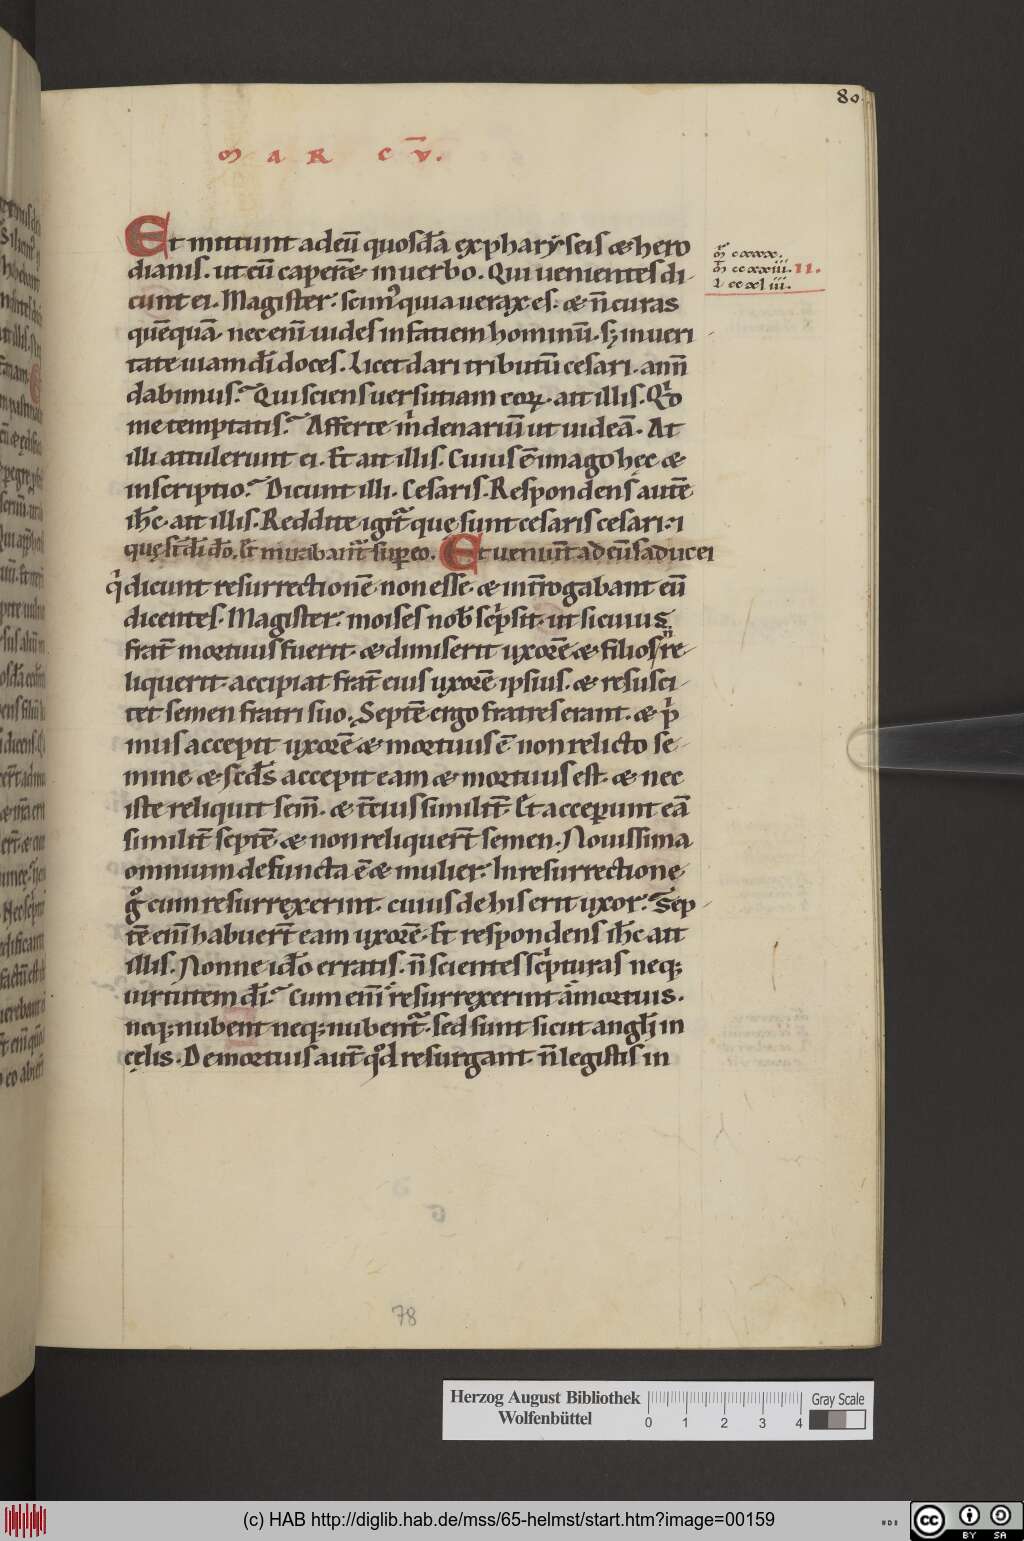 80.
M A R C V̅.
Et mittunt ad eū quosdā ex pharyseis & hero
dianis. ut eū caperēt in uerbo. Qui uenientes di
cunt ei. Magister. scim᾿ quia uerax es. & n̄ curas
quēquā. nec eni̅ uides in faciem hominū. sꝫ in ueri
tate uiam dī doces. Licet dari tributū cesari. an n̄
dabimus? Qui sciens uersutiam eoꝝ. ait illis. Qͥd
me temptatis? Afferte m̍ denariū ut uideā. At
illi attulerunt ei. Et ait illis. Cuius ē imago hęc &
inscriptio? Dicunt illi. Cesaris. Respondens autē
ihc̅. ait illis. Reddite igit᷑ que sunt cesaris cesari. &
quę st̅ dī dō. Et mirabant᷑ sup eo. Et ueniunt ad eū saducei
qͥ dicunt resurrectionē non esse. & int̅rogabant eū
dicentes. Magister. moises nob̅ scͥpsit. ut si cuius
frat̅ mortuus fuerit. & dimiserit uxorē & filios n̄ re
liquerit. accipiat frat̅ eius uxorē ipsius. & resusci
tet semen fratri suo. Septē ergo fratres erant. & pͥ
mus accepit uxorē & mortuus ē non relicto se
mine. & scds̅ accepit eam & mortuus est. & nec
iste reliquit sem̅. & t̅cius similit̅. Et acceperunt eā
similit̅ septē. & non reliquer̅t semen. Nouissima
omnium defuncta ē & mulier. In resurrectione
gͦ cum resurrexerint. cuius de his erit uxor? Sep
tē eni̅ habuer̅t eam uxorē. Et respondens ihc̅ ait
illis. Nonne idō erratis. n̄ scientes scͥpturas neqꝫ
uirtutem dī? Cum eni̅ resurrexerint a mortuis.
neqꝫ nubent neqꝫ nubent᷑. sed sunt sicut angl̅i in
cęlis. De mortuis aut̅ qͦd resurgant. n̄ legistis in
ccxxiii. II.
78
Herzog August Bibliothek
Wolfenbüttel
0 1 2 3 4
Gray Scale
(c) HAB http://diglib.hab.de/mss/65-helmst/start.htm?image=00159
HAB
cc BY SA